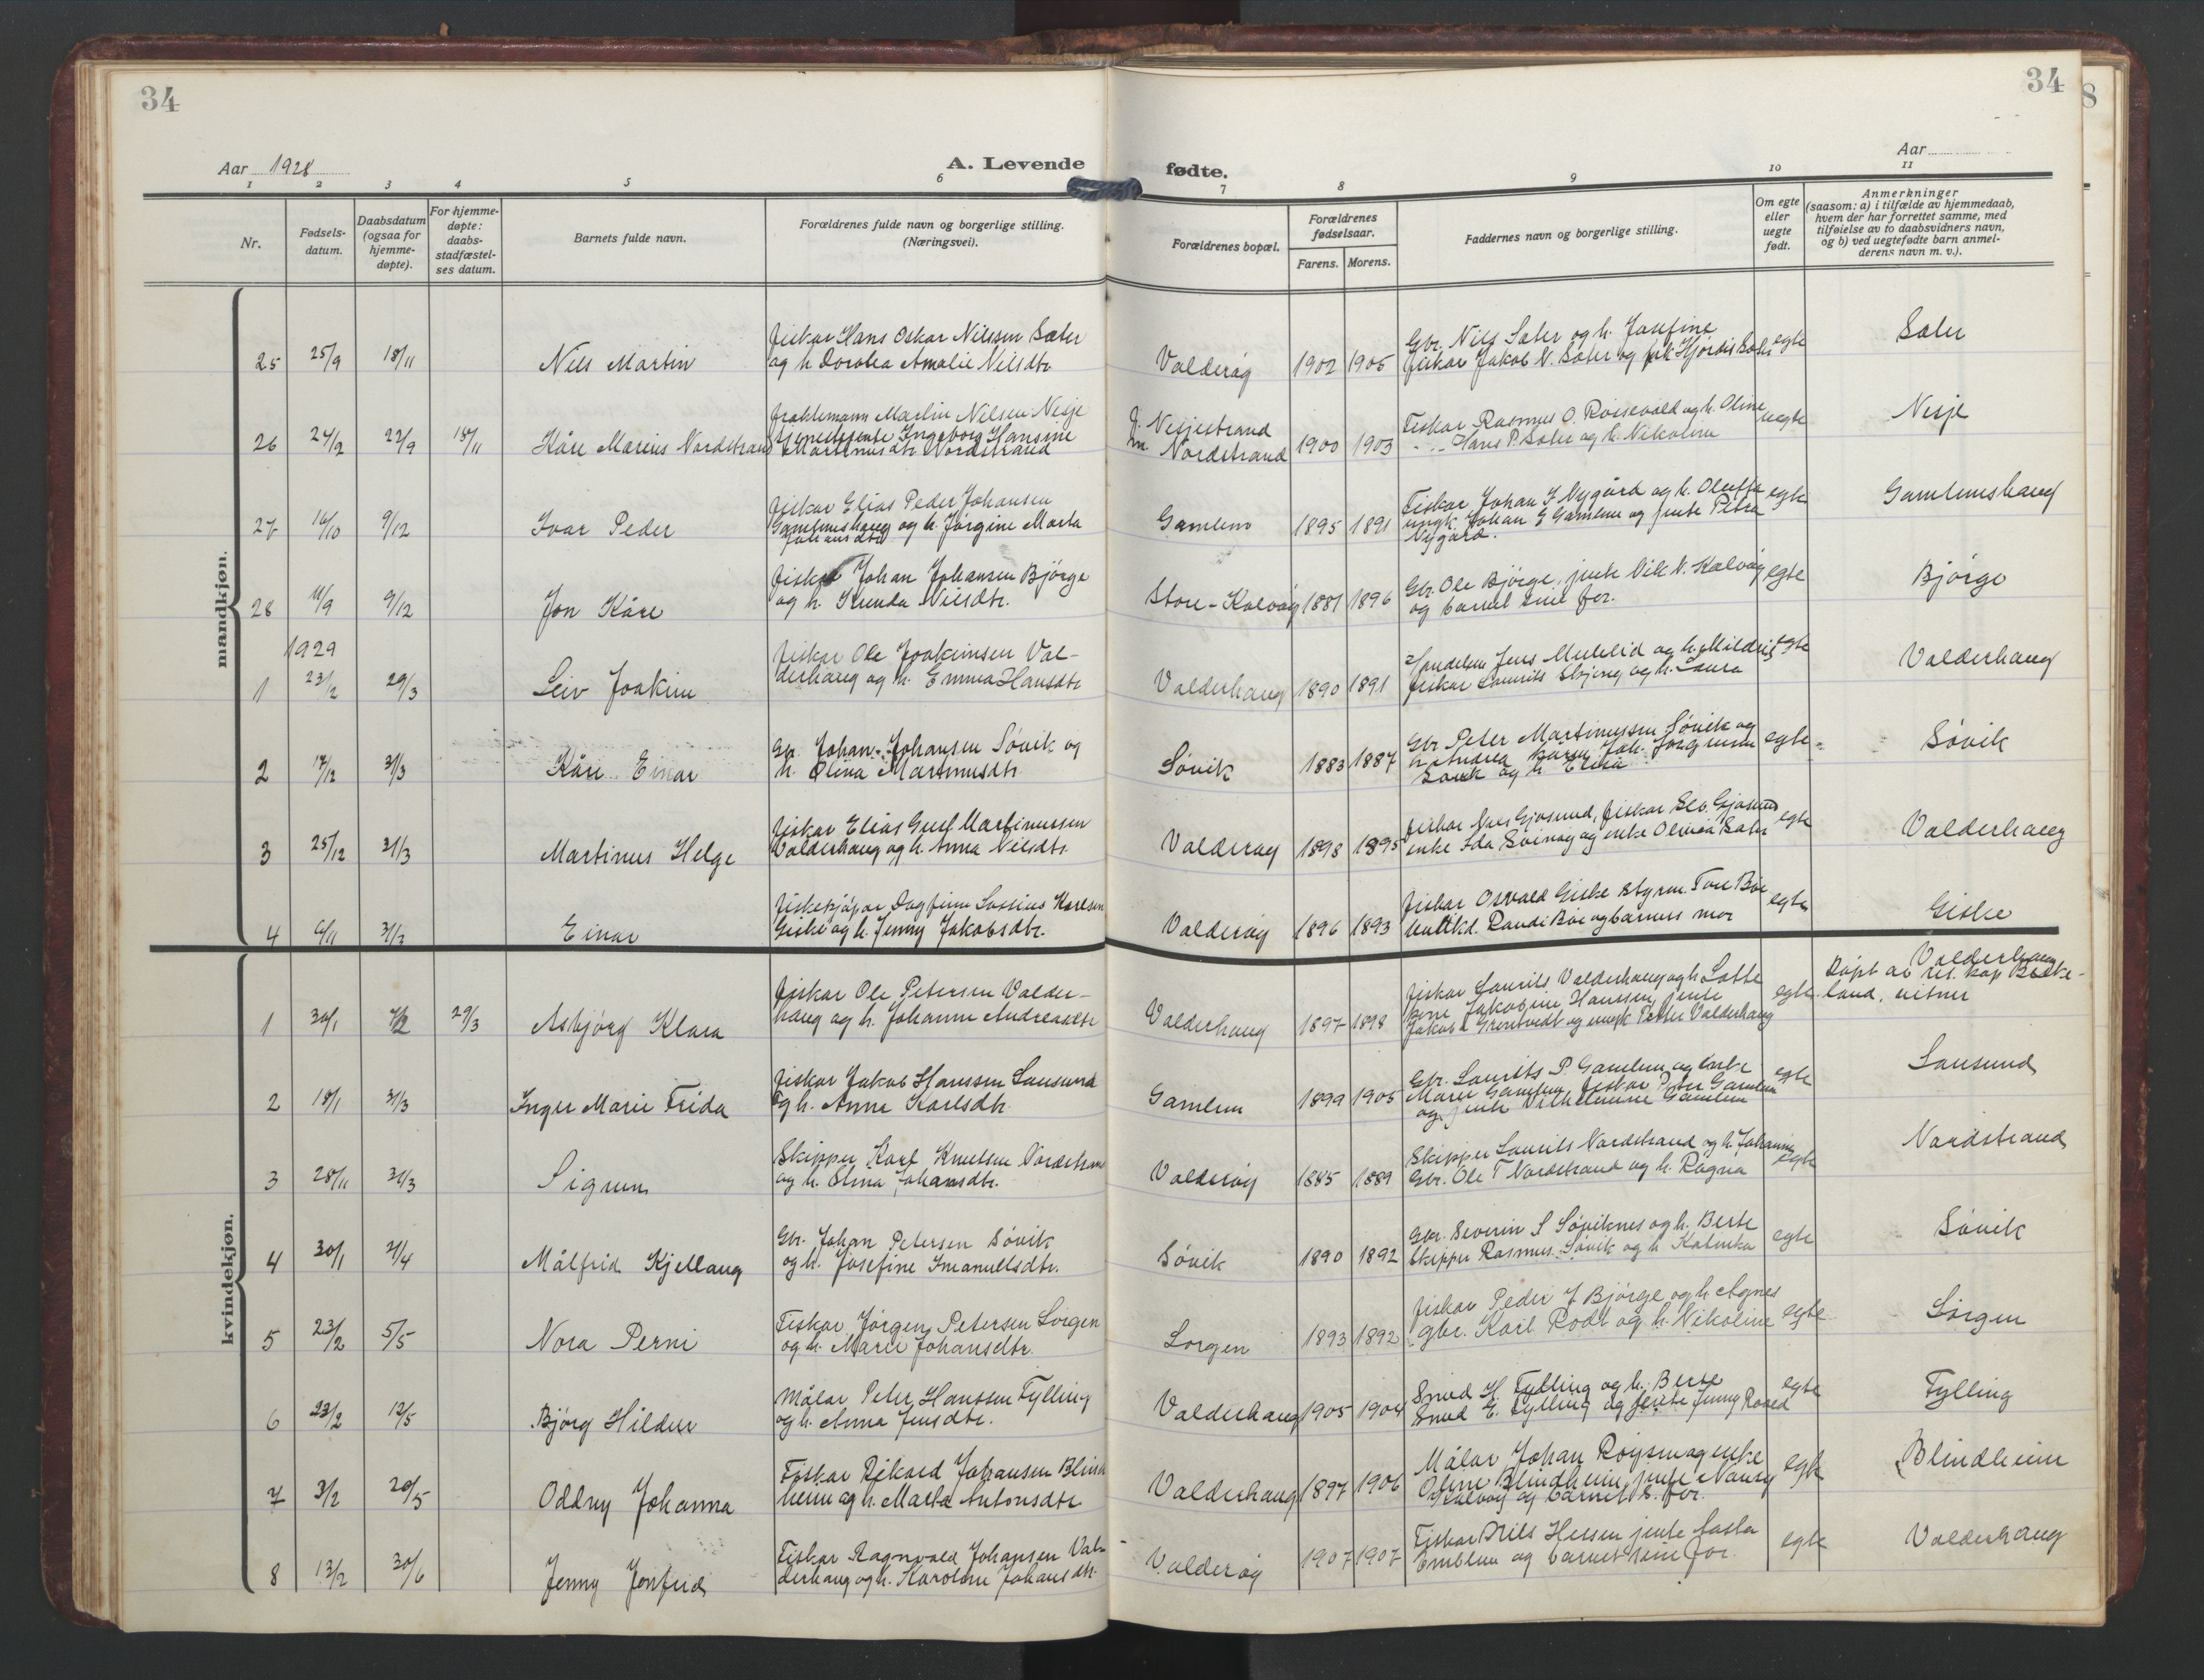 34
34
Aar 1928
A. Levende
fødte.
Aar
1 2 3 4 5 6 7 8 9 10 11
Nr.
Fødsels-
datum.
Daabsdatum
(ogsaa for
hjemme-
døpte).
For hjemme-
døpte:
daabs-
stadfæstel-
ses datum.
Barnets fulde navn.
Forældrenes fulde navn og borgerlige stilling.
(Næringsvei).
Forældrenes bopæl.
Forældrenes
fødselsaar.
Farens. Morens.
Faddernes navn og borgerlige stilling.
Om egte
eller
uegte
født.
Anmerkninger
(saasom: a) i tilfælde av hjemmedaab,
hvem der har forrettet samme, med
tilføielse av to daabsvidners navn,
og b) ved uegtefødte barn anmel-
derens navn m. v.).
mandkjøn.
25 25/9 18/11 Nils Martin
Fiskar Hans Oskar Nilssen Sæter
og h. Dorotea Amalie Nilsdtr.
Valderøy 1902 1905
Gbr. Nils Sæter og h. Josefine
fiskar Jakob N. Sæter og frk Hjørdis Sæter
egte
Sæter
26 24/2 22/9 18/11 Kåre Marius Nordstrand
Fraktemann Martin Nilsen Nesje
tjenestejente Ingeborg Hansine
Martinusdtr Nordstrand
f. Nesjestrand
m. Nordstrand
1900 1903
Fiskar Rasmus O. Roisevold og h. Oline
- " - Hans P. Sæter og h. Nikoline
uegte
Nesje
27 16/10 9/12 Ivar Peder
fiskar Elias Peder Johansen
Gamlemshaug og h. Jørgine Marta
Johansdtr
Gamlem 1895 1891
Fiskar Johan J. Nygård og h. Oluffa
ungk. Johan E Gamlem og jente Petra
Nygård.
egte
Gamlemshaug
28 11/9 9/12 Jon Kåre
fiskar Johan Johansen Bjørge
og h. Gunda Nilsdtr.
Store-Kalvøy 1881 1896
Gbr. Ole Bjørge, jente Vik N. Kalvøy
og barnet sine for.
egte
Bjørge
1929
1 23/2 29/3 Leiv Joakim
fiskar Ole Joakimsen Val-
derhaug og h. Emma Hansdtr
Valderhaug 1890 1891
Handelsm Jens Muklid og h. Mildrid
fiskar Laurits Skjong og h. Laura
egte
Valderhaug
2 17/12 31/3 Kåre Einar
Gbr. Johan Johansen Søvik og
h. Olina Martinusdtr
Søvik 1883 1887
Gbr Peter Martinussen Søvik og
h. Andrea Joh. Jørgensen
Søvik og h.
egte
Søvik
3 25/12 31/3 Martinus Helge
fiskar Elias Gust Martinussen
Valderhaug og h. Anna Nilsdtr.
Valderøy 1898 1895
fiskar Nils Gjøsund, fiskar Elv. Gjøsund
enke Ida Svinøy og enke Olivia Sæter
egte
Valderhaug
4 6/11 31/3 Einar
fiskekjøpar Dagfinn Lossius Karlsen
Giske og h. Jenny Jakobsdtr.
Valderøy 1896 1893
fiskar Osvald Giske styrm. Tore Bøe
Randi Bøe og barnets mor
egte
Giske
kvindekjøn.
1 30/1 7/2 29/3 Asbjørg Klara
fiskar Ole Petersen Valder-
haug og h. Johanne Andreasdtr
Valderhaug 1897 1898
fiskar Laurits Valderhaug og h Lotte
Jakobine Hanssen, jente
Jakoba Grøntvedt og ungk Petter Valderhaug
egte
Valderhaug
Døpt av res. kap Birke-
land, vitner
2 18/1 31/3 Inger Marie Frida
fiskar Jakob Hanssen Lausund
og h. Anna Karlsdtr.
Gamlem 1899 1905
Gbr. Laurits P. Gamlem og enke
Marie Gamlem, fiskar Peter Gamlem
og jente Vilhelmine Gamlem
egte
Lausund
3 28/11 31/3 Sigrun
Skipper Karl Knutsen Nordstrand
og h. Elina Johansdtr.
Valderøy 1885 1889
Skipper Laurits Nordstrand og h. Johanne
Gbr. Ole T Nordstrand og h. Ragna
egte
Nordstrand
4 30/1 21/4 Målfrid Kjellaug
Gbr. Johan Petersen Søvik
og h. Josefine Imanuelsdtr.
Søvik 1890 1892
Gbr. Severin S Søviknes og h. Berte
Skipper Rasmus Søvik og h Katinka
egte
Søvik
5 23/2 5/5 Nora Perni
Fiskar Jørgen Petersen Sorgen
og h. Marie Johansdtr.
Sorgen 1893 1892
fiskar Peder J Bjørge og h. Agnes
gbr. Karl Rødt og h. Nikoline
egte
Sorgen
6 23/2 12/5 Bjørg Hildur
Målar Peter Hanssen Fylling
og h. Anna Jensdtr.
Valderhaug 1905 1904
Smed H. Fylling og h. Berte
Smed E. Fylling og jente Jenny Roald
egte
Fylling
7 3/2 20/5 Oddny Johanna
Fiskar Rikard Johansen Blind
heim og h. Marta Antonsdtr
Valderhaug 1897 1906
Målar Johan Roysen og enke
Oline Blindheim, jente Nancy
Kalvøy og barnets s. for.
egte
Blindheim
8 13/2 30/6 Jenny Jonfrid
Fiskar Ragnvald Johansen Val-
derhaug og h. Karoline Johansdtr.
Valderøy 1907 1907
Fiskar Nils Hessen jente Aasta
Emblem og barnet sine for.
egte
Valderhaug